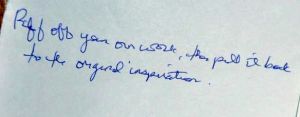 Riff off your own work, then pull it back
to the original inspiration.